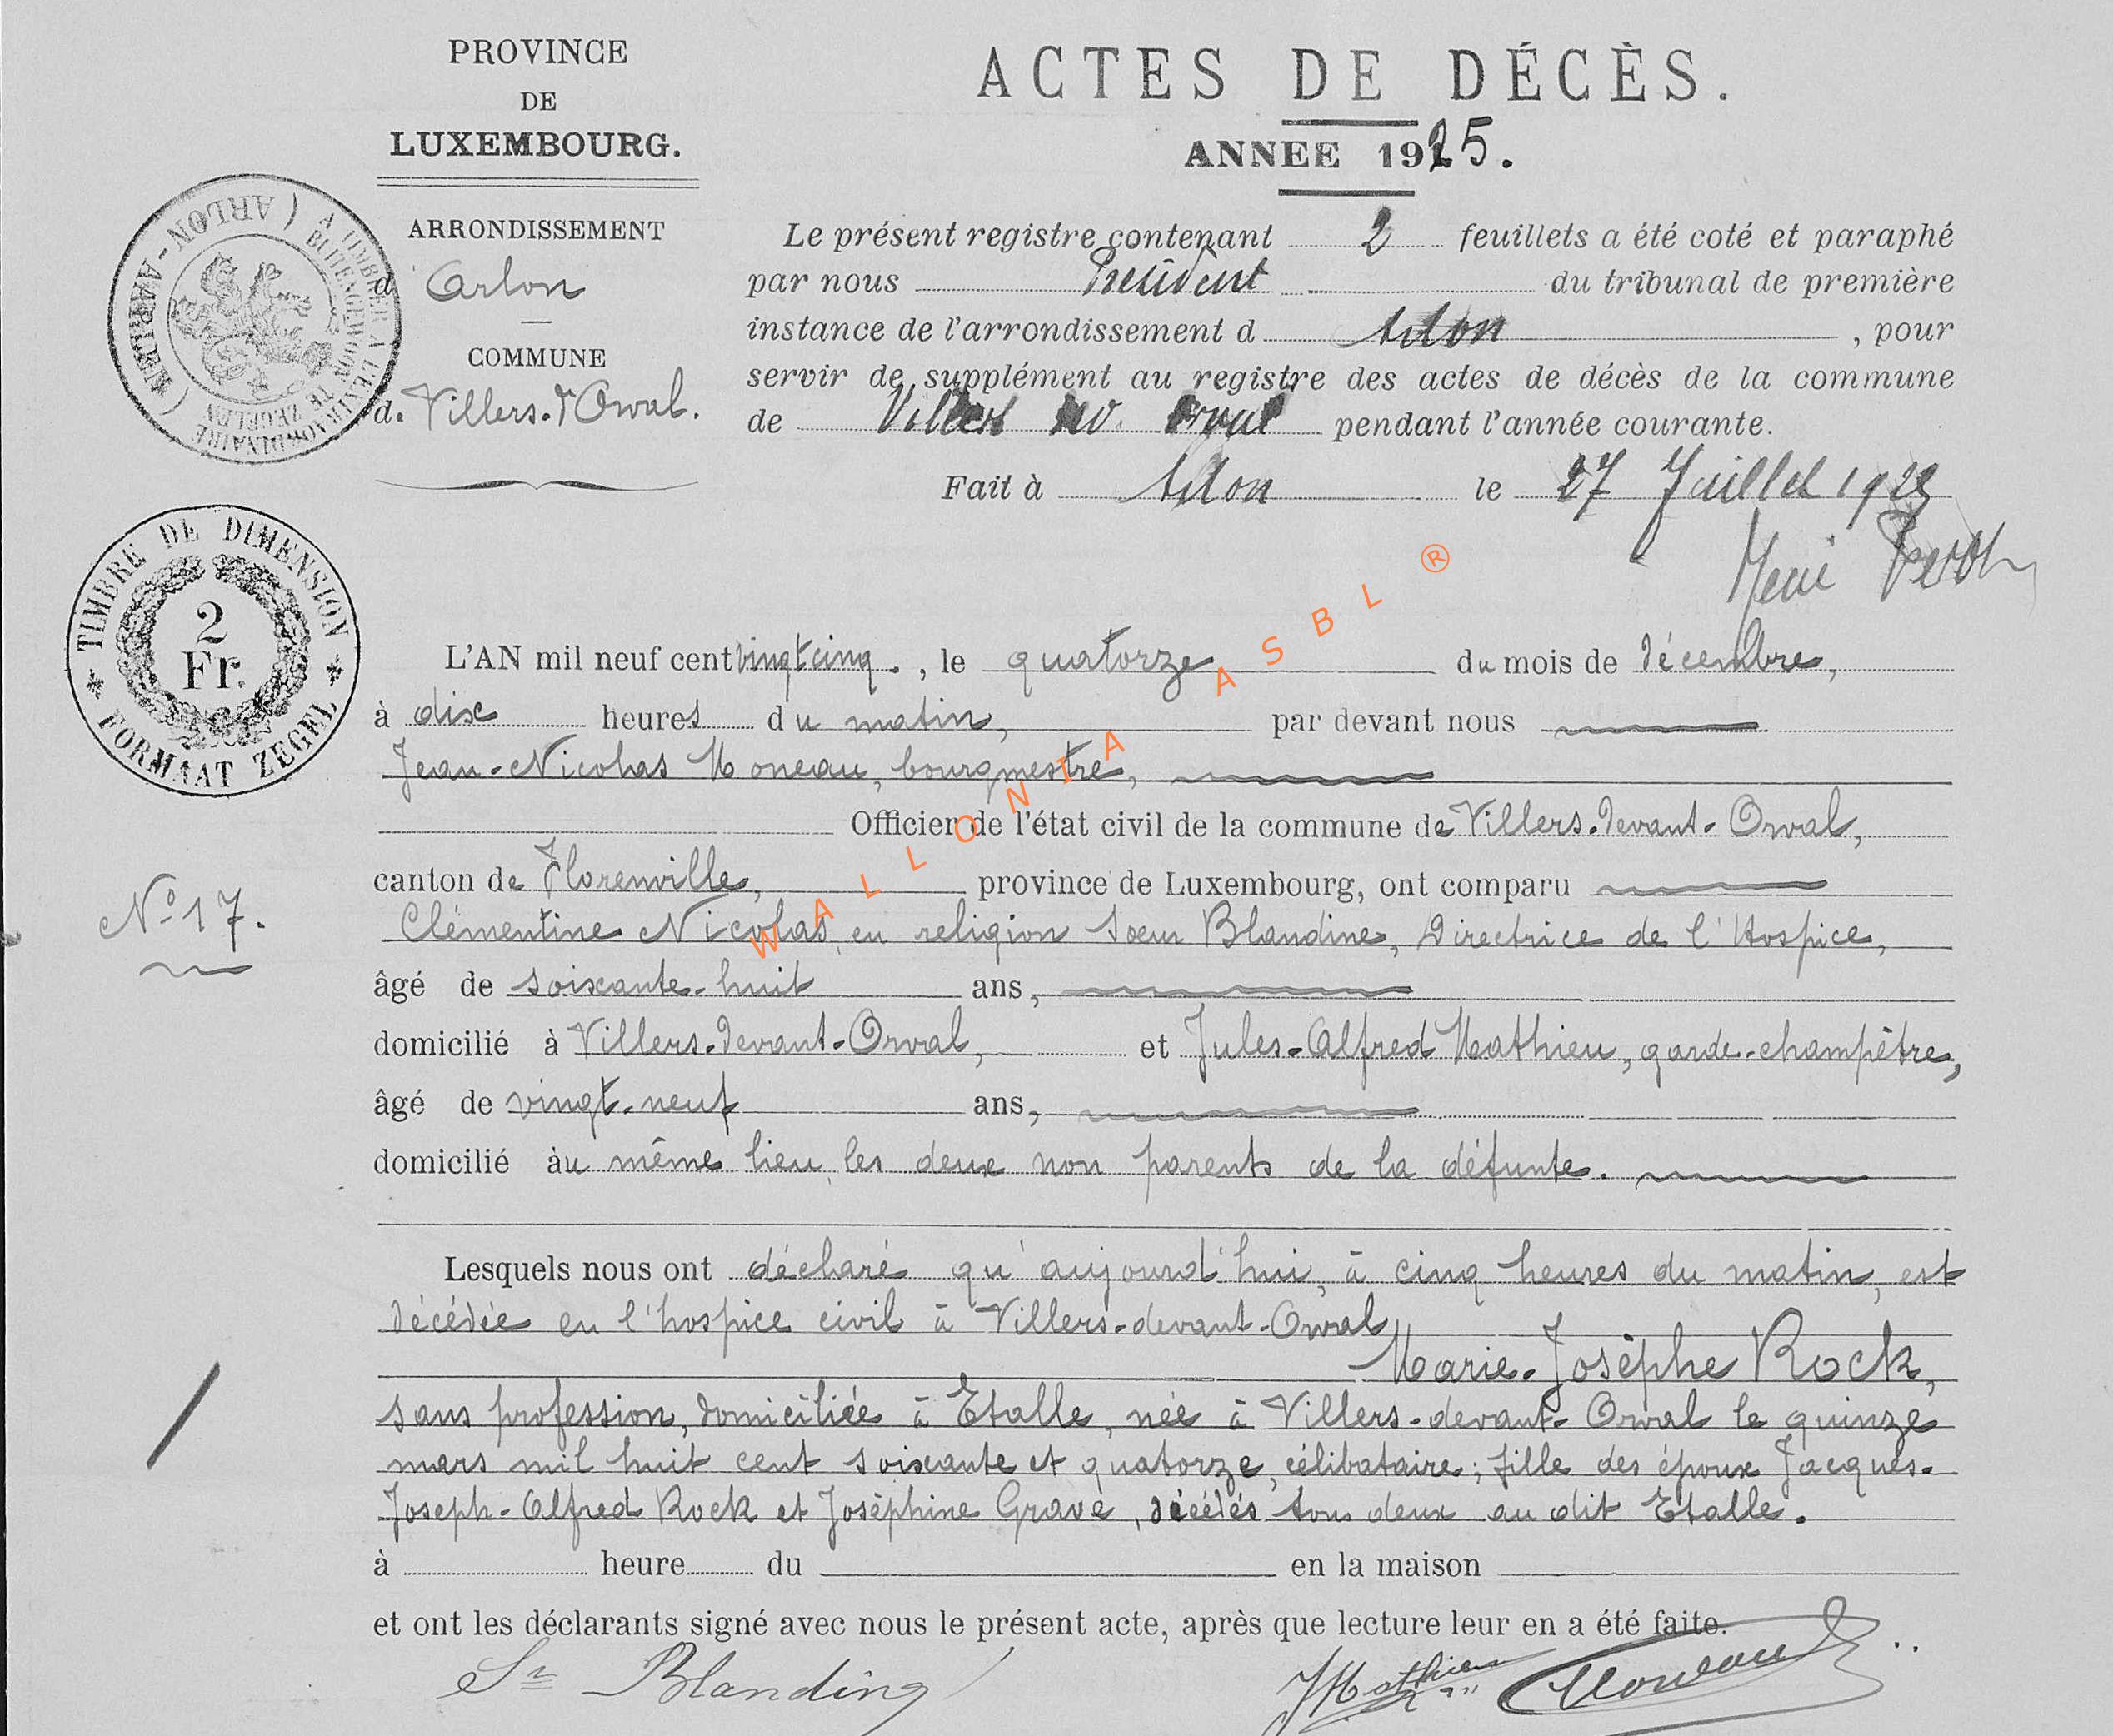 PROVINCE
DE
LUXEMBOURG.
ACTES DE DÉCÈS.
ANNEE 1925.
ARRONDISSEMENT
d Arlon
COMMUNE
d. Villers.d'Orval.
Le présent registre contenant 2 feuillets a été coté et paraphé
par nous Président du tribunal de première
instance de l'arrondissement d Arlon, pour
servir de supplément au registre des actes de décès de la commune
de Villers dev. Orval pendant l'année courante.
Fait à Arlon le 27 Juillet 1925
A TIMBRER A L'EXTRAORDINAIRE
BUITENGEWOON TE ZEGELEN
( ARLON - AARLEN )
TIMBRE DE DIMENSION
2
Fr.
FORMAAT ZEGEL
L'AN mil neuf cent vingt cinq., le quatorze du mois de décembre,
à dix heures du matin, par devant nous
Jean-Nicolas Moneau, bourgmestre,
Officier de l'état civil de la commune de Villers-devant-Orval,
canton de Florenville, province de Luxembourg, ont comparu
N° 17.
Clémentine Nicolas, en religion Soeur Blandine, Directrice de l'Hospice,
âgé de soixante-huit ans,
domicilié à Villers-devant-Orval, et Jules-Alfred Mathieu, garde-champêtre,
âgé de vingt-neuf ans,
domicilié au même lieu, les deux non parents de la défunte.
Lesquels nous ont déclaré qu'aujourd'hui, à cinq heures du matin, est
décédée en l'hospice civil à Villers-devant-Orval
Marie-Josèphe Rock,
sans profession, domiciliée à Etalle, née à Villers-devant-Orval le quinze
mars mil huit cent soixante et quatorze, célibataire; fille des époux Jacques-
Joseph-Alfred Rock et Joséphine Gravé, décédés tous deux au dit Etalle.
à heure du en la maison
et ont les déclarants signé avec nous le présent acte, après que lecture leur en a été faite.
Sr Blandine
JMathieu
Moneau
WALLONIA ASBL ®